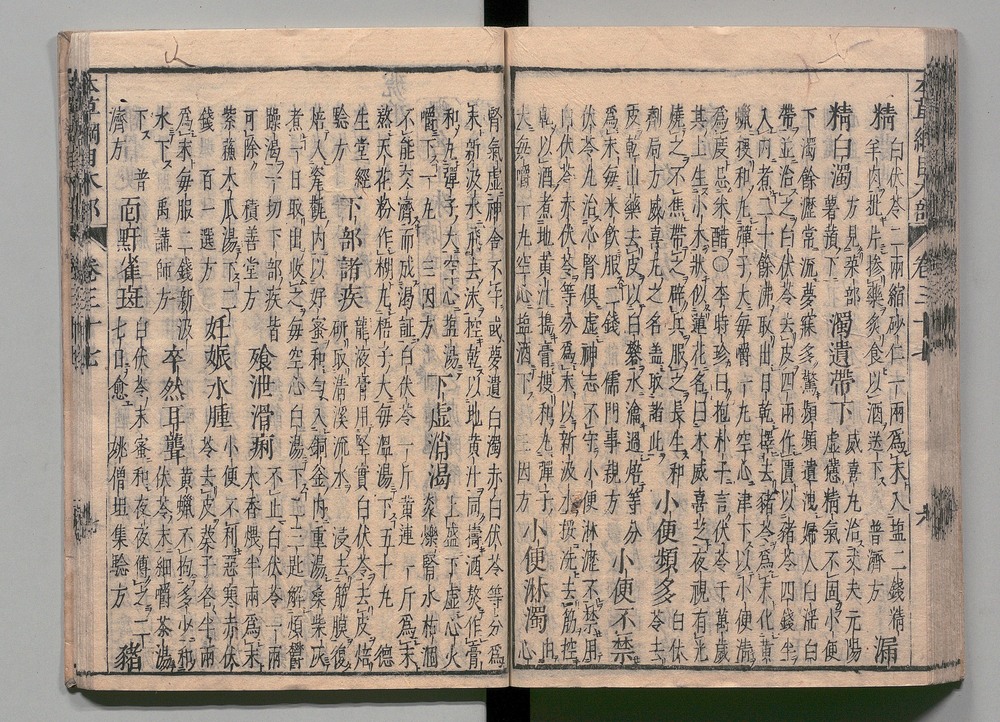 精 白伏苓二兩縮砂仁一兩爲末入盐二錢精
羊肉批片掺藥炙食以酒送下 普濟方 漏
精白濁 方見菜部薯蕷下 濁遺帶下 威喜丸治丈夫元陽虛憊精氣不固小便
下濁餘瀝常流夢寐多驚頻頻遺洩婦人白淫白
帶並治之白伏苓去皮四兩作匱以豬苓四錢半
入內煮二十餘沸取出日乾擇去豬苓爲末化黃
蠟搜和丸彈子大每嚼一丸空心津下以小便清
爲度忌米醋○李時珍曰抱朴子言伏苓千萬歲
其上生小木狀似蓮花名曰木威喜芝夜視有光
燒之不焦帶之辟兵服之長生和
劑局方威喜丸之名盖取諸此 小便頻多 白伏苓去
皮乾山藥去皮以白礬水瀹過焙等分
爲末每米飲服二錢 儒門事親方 小便不禁
伏苓丸治心腎俱虛神志不守小便淋瀝不禁用
白伏苓赤伏苓等分爲末以新汲水挼洗去筋控
乾以酒煮地黃汁搗膏搜和丸彈子
大每嚼一丸空心盐酒下 三因方 小便淋濁 由心
腎氣虛神舍不守或夢遺白濁赤白伏苓等分爲
末新汲水飛去沫控乾以地黃汁同搗酒熬作膏
和丸彈子大空心盐湯
嚼下一丸 三因方 下虛消渴 上盛下虛心火
炎爍腎水枯涸
不能交濟而成渴証白伏苓一斤黃連一斤爲末
熬天花粉作糊丸梧子大每溫湯下五十丸 德
生堂經
驗方 下部諸疾 龍液膏用堅實白伏苓去皮焙
研取清溪流水浸去筋膜復
焙入瓷罐內以好蜜和勻入銅釜內重湯桑柴灰
煮一日取出收之每空心白湯下二三匙解煩鬱
躁渴一切下部諸疾皆
可除 積善堂方 飱泄滑痢 不止白伏苓一兩
木香煨半兩爲末
紫蘇木瓜湯下二
錢 百一選方 妊娠水腫 小便不利惡寒赤伏
苓去皮葵子各半兩
爲末每服二錢新汲
水下 禹講師方 卒然耳聾 黃蠟不拘多少和
伏苓末細嚼茶湯
下 普
濟方 面䵟雀斑 白伏苓末蜜和夜夜傅之二
七日愈 姚僧坦集驗方 豬